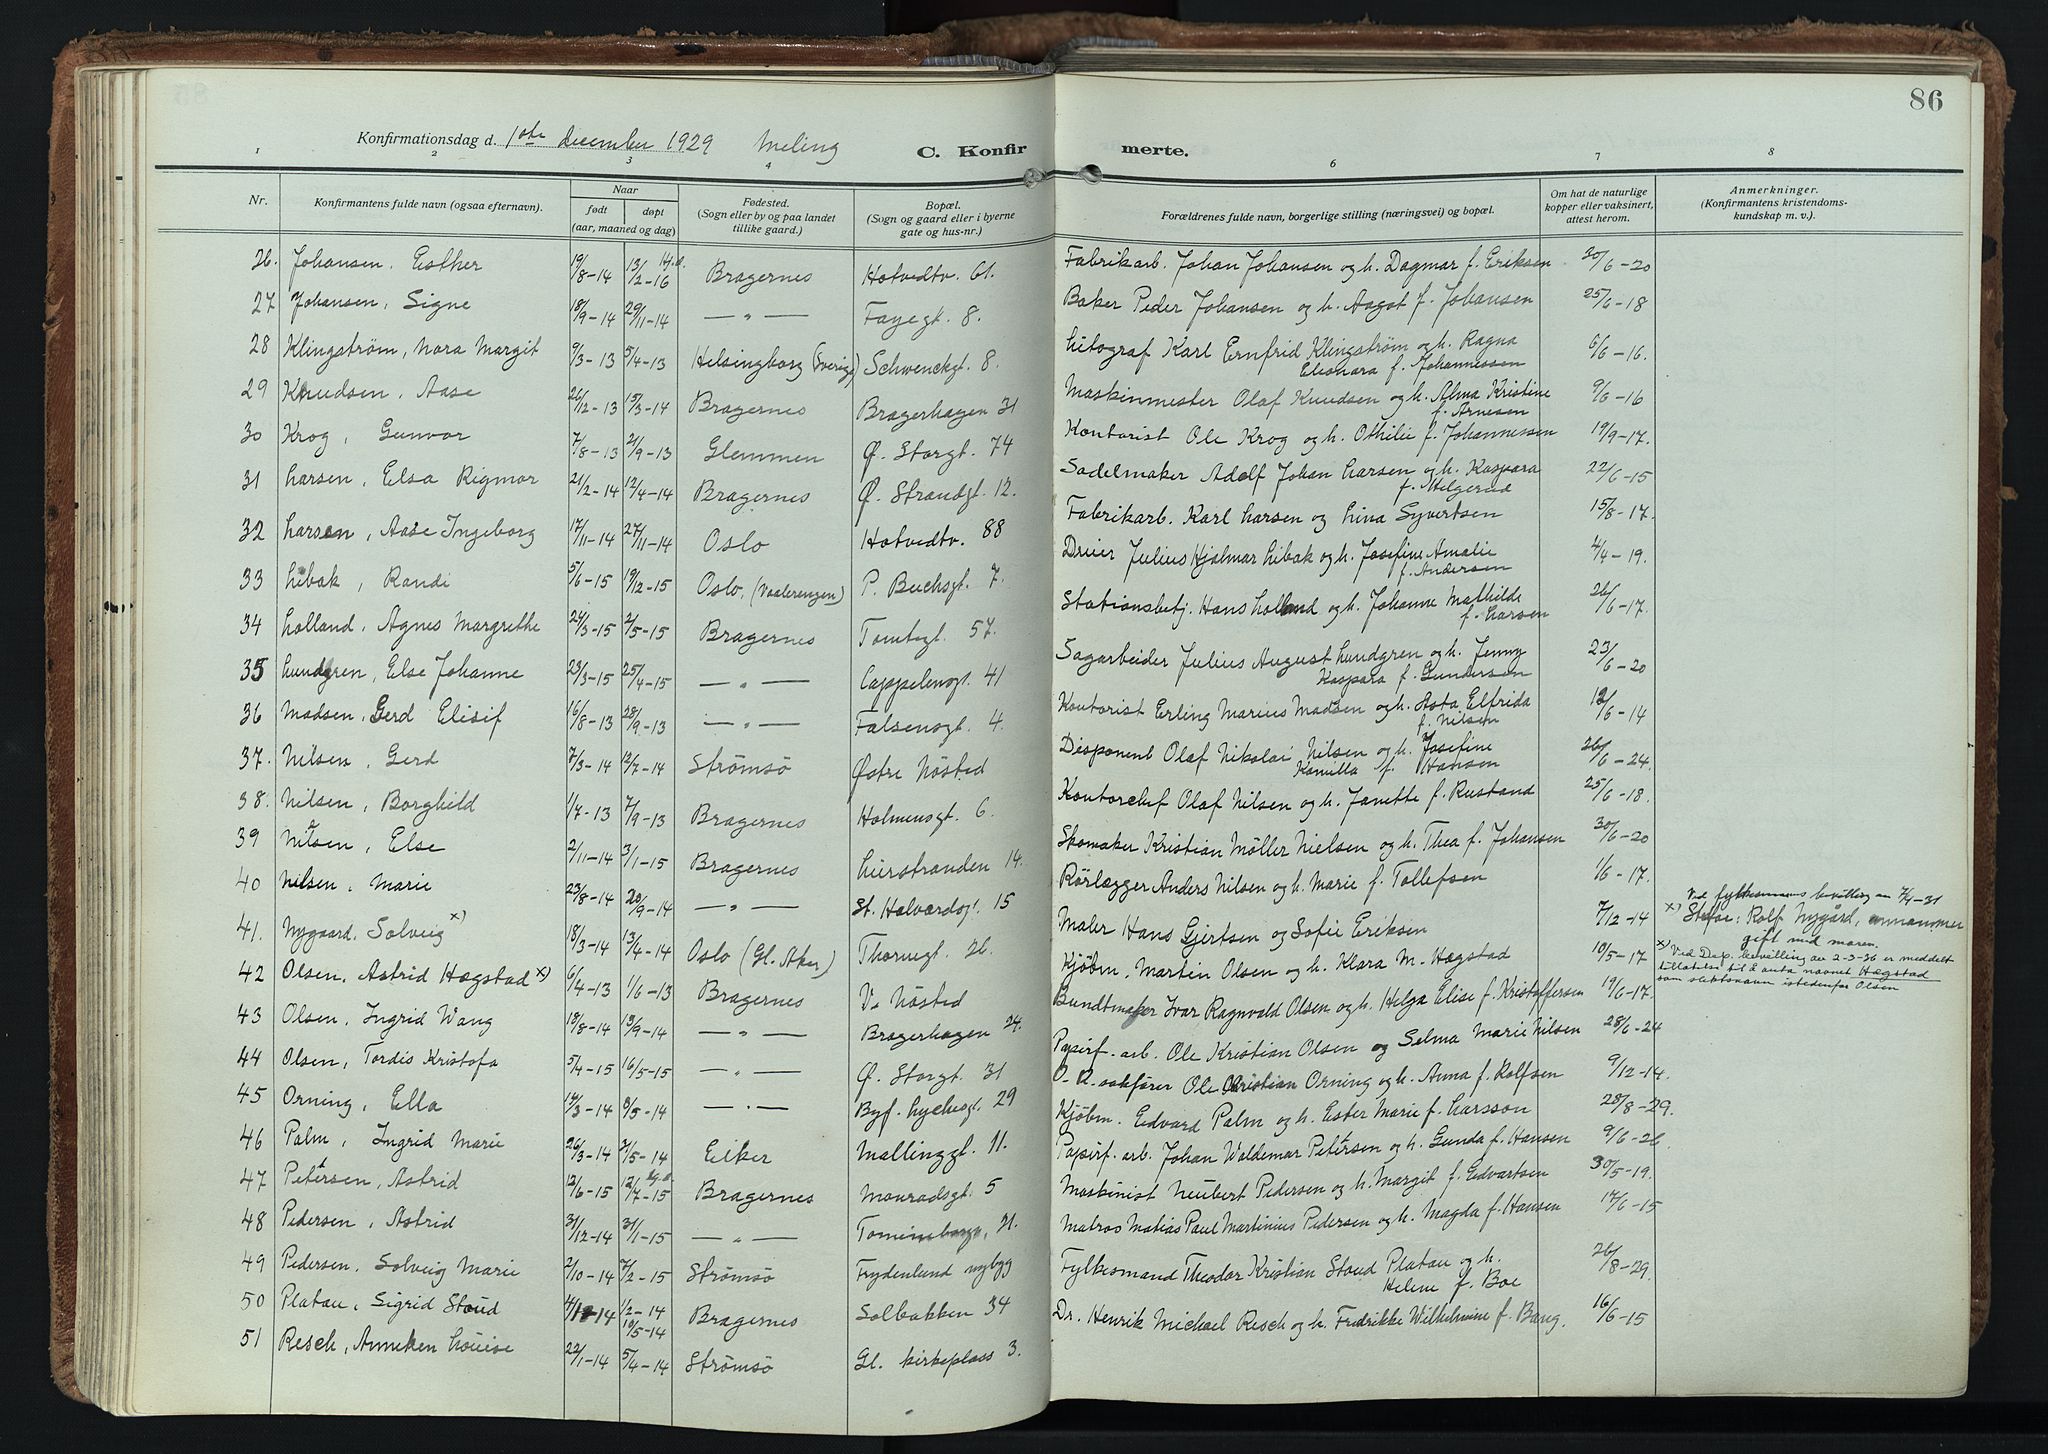 86
Konfirmationsdag d. 1ste december 1929 Meling
C. Konfirmerte.
1 2 3 4 6 7 8
Nr.
Konfirmantens fulde navn (ogsaa efternavn).
Naar
født døpt
(aar, maaned og dag)
Fødested.
(Sogn eller by og paa landet
tillike gaard.)
Bopæl.
(Sogn og gaard eller i byerne
gate og hus-nr.)
Forældrenes fulde navn, borgerlige stilling (næringsvei) og bopæl.
Om hat de naturlige
kopper eller vaksinert,
attest herom.
Anmerkninger.
(Konfirmantens kristendoms-
kundskap m. v.).
26. Johansen, Esther 19/8-14 13/2-16 Bragernes Hotvedtv. 61. Fabrikarb. Johan Johansen og h. Dagmar f. Eriksen 20/6-20
27 Johansen, Signe 18/9-14 29/11-14 — " — Fayegt. 8. Baker Peder Johansen og h. Aagot f. Johansen 25/6-18
28 Klingstrøm, Nora Margit 9/3-13 5/4-13 Helsingborg (Sverige) Schwenckgt. 8. Litograf Karl Ernfrid Klingstrøm og h. Ragna
Eleonara f. Johannessen 6/6-16.
29 Knudsen, Aase 26/12-13 15/3-14 Bragernes Bragerhagen 31 Maskinmester Olaf Knudsen og h. Alma Kristine
f. Arnesen 9/6-16
30 Krog, Gunvor 7/8-13 21/9-13 Glemmen Ø. Storgt. 74 Kontorist Ole Krog og h. Othilie f. Johannessen 19/9-17.
31 Larsen, Elsa Rigmor 21/2-14 12/4-14 Bragernes Ø. Strandgt. 12. Sadelmaker Adolf Johan Larsen og h. Kaspara
f. Helgerud 22/6-15
32 Larsen, Aase Ingeborg 17/11-14 27/11-14 Oslo Hotvedtv. 88 Fabrikarb. Karl Larsen og Lina Syvertsen 15/8-17.
33 Libak, Randi 5/6-15 19/12-15 Oslo, (Vaalerengen) P. Buchsgt. 7. Dreier Julius Hjalmar Libak og h. Josefine Amalie
f. Andersen 4/4-19.
34 Lolland, Agnes Margrethe 24/3-15 2/5-15 Bragernes Tomtegt. 57. Stationsbetj. Hans Lolland og h. Johanne Mathilde
f. Larsen 26/6-17.
35 Lundgren, Else Johanne 23/3-15 25/4-15 — " — Cappelensgt. 41 Sagarbeider Julius August Lundgren og h. Jenny
Kaspara f. Gundersen 23/6-20
36 Madsen, Gerd Elisif 16/8-13 28/9-13 — " — Falsensgt. 4. Kontorist Erling Marius Madsen og h. Asta Elfrida
f. Nilsen 12/6-14
37. Nilsen, Gerd 7/3-14 12/7-14 Strømsø Østre Nøsted Disponent Olaf Nikolai Nilsen og h. Josefine
Kamilla f. Hansen 26/6-24.
38. Nilsen, Borghild 1/7-13 7/9-13 Bragernes Holmensgt. 6. Kontorchef Olaf Nilsen og h. Janette f. Rustand 25/6-18.
39 Nilsen, Else 2/11-14 3/1-15 Bragernes Lierstranden 14. Skomaker Kristian Möller Nielsen og h. Thea f. Johansen 30/6-20
40 Nilsen, Marie 23/8-14 20/9-14 — " — St. Halvardsgt. 15 Rörlægger Anders Nilsen og h. Marie f. Tollefsen 1/6-17.
41. Nygaard, Solveig x) 18/3-14 13/6-14 Oslo (Gl. Aker) Thornegt. 26. Maler Hans Gjertsen og Sofie Eriksen 7/12-14
Ved fylkesmanns bevilling av 7/4-31
x) Stefar: Rolf Nygård,
gift med moren.
42 Olsen, Astrid Hægstad x) 6/4-13 1/6-13 Bragernes V. Nøsted Kjøbm. Martin Olsen og h. Klara M. Hægstad 10/5-17
x) Ved Dep. bevilling av 2-3-36 er meddelt
tillatelse til å anta navnet Hægstad
som slektsnavn istedenfor Olsen
43 Olsen, Ingrid Wang 18/8-14 13/9-14 — " — Bragerhagen 24. Bundtmaker Ivar Ragnvald Olsen og h. Helga Elise f. Kristoffersen 19/6-17.
44 Olsen, Tordis Kristofa 5/4-15 16/5-15 — " — Ø. Storgt. 31 Papirf. arb. Ole Kristian Olsen og Selma Marie Nilsen 28/6-24
45 Orning, Ella 14/3-14 8/5-14 — " — Byf. Lychesgt. 29 O. R. sakfører Ole Christian Orning og h. Anna f. Rolfsen 9/12-14.
46 Palm, Ingrid Marie 26/3-14 21/5-14 Eiker Mallinggt. 11. Kjøbm. Edvard Palm og h. Ester Marie f. Larsson 28/8-29.
47 Petersen, Astrid 12/6-15 12/7-15 Bragernes Monradsgt. 5 Papirf. arb. Johan Waldemar Petersen og h. Gunda f. Hansen 9/6-26.
48 Pedersen, Astrid 31/12-14 31/1-15 — " — 21. Maskinist Neubert Pedersen og h. Margit f. Edvartsen 30/5-19.
49 Pedersen, Solveig Marie 2/10-14 7/2-15 Strømsø Frydenlund nybyg Matros Matias Paul Martinius Pedersen og h. Magda f. Hansen 17/6-15
50 Platou, Sigrid Stoud 1/2-14 10/5-14 Bragernes Solbakken 34 Fylkesmand Theodor Kristian Stoud Platou og h.
Helene f. Boe 26/8-29.
51 Resch, Anneken Louise 22/1-14 5/4-14 Strømsø Gl. kirkeplass 3. Dr. Henrik Michael Resch og h. Fredrikke Wilhelmine f. Bang. 16/6-15